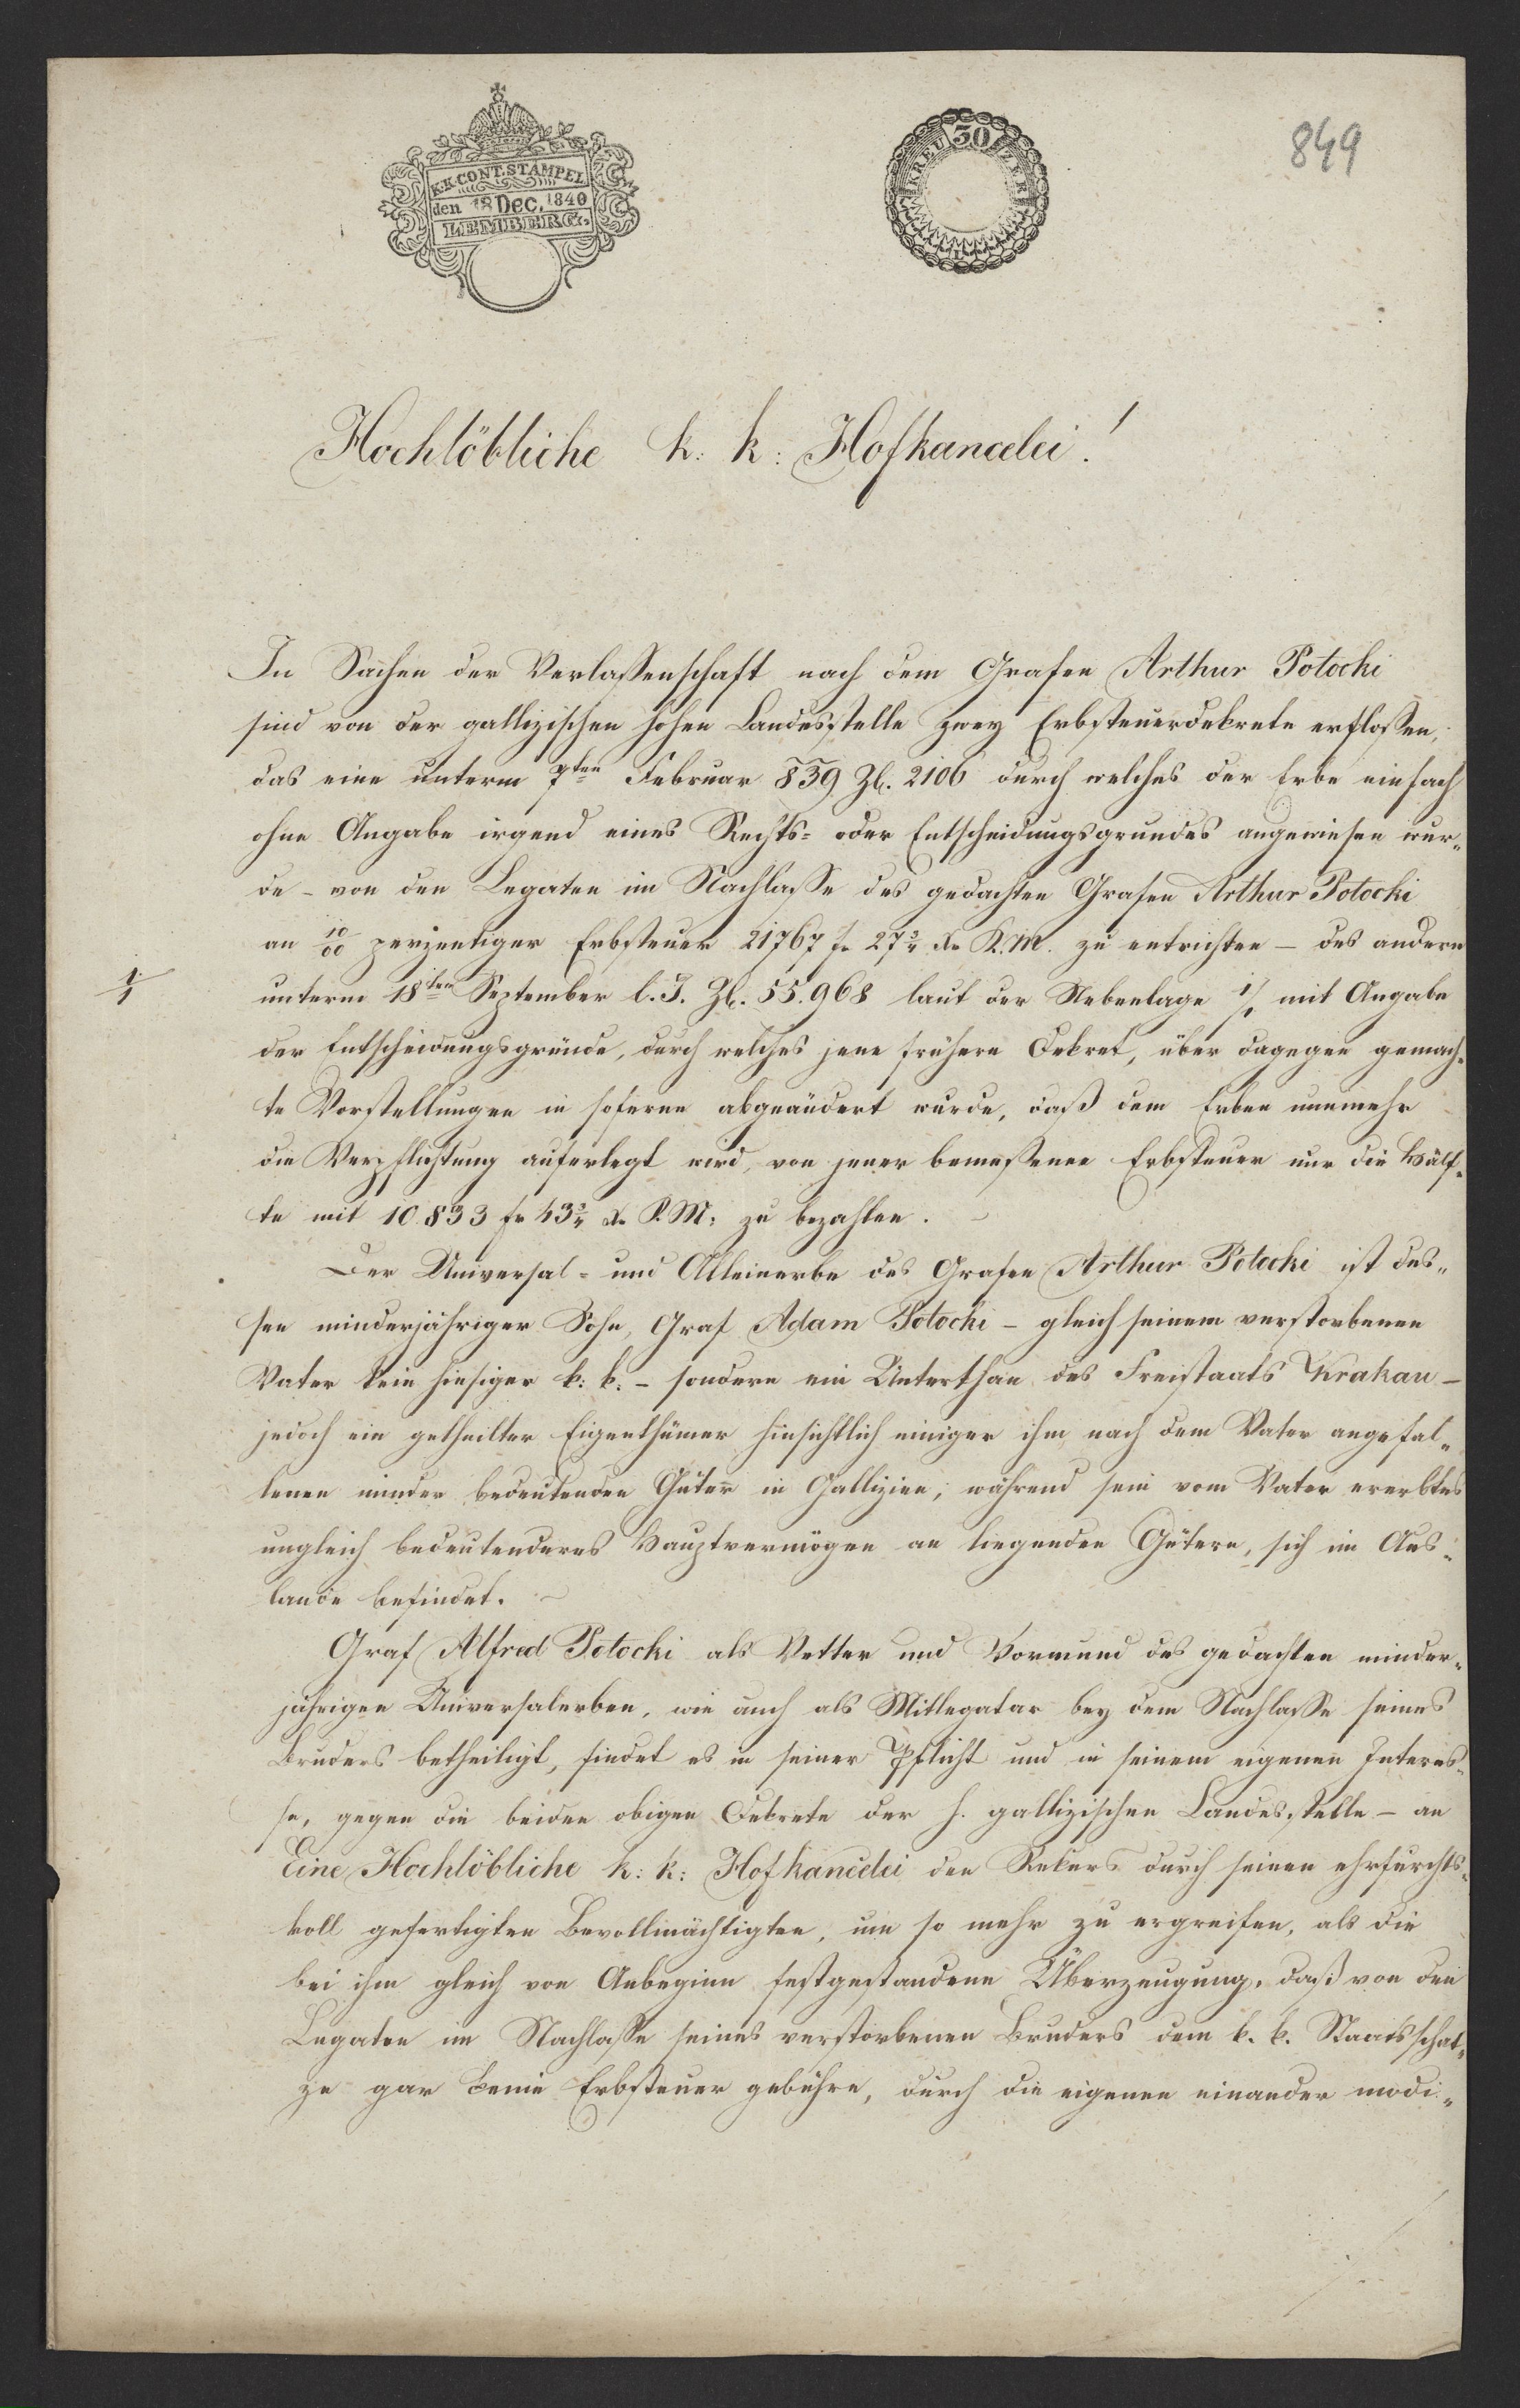 K.K. CONT. STAMPEL
den 18 Dec. 1840
LEMBERG.
30
KREUTZER
849
Hochlöbliche k: k: Hofkancelei!
In Sachen der Verlaßenschaft nach dem Grafen Arthur Potocki
sind von der gallizischen hohen Landesstelle zwey Erbsteuerdekrete erfloßen,
das eine unterm 7ten Februar 839 Zl. 2106 durch welches der Erbe einfach
ohne Angabe irgend eines Rechts- oder Entscheidungsgrundes angewiesen wur„
de - von den Legaten im Nachlaße des gedachten Grafen Arthur Potocki
an 10/00 perzentiger Erbsteuer 21767 fr 27 3/4 Xr K.M. zu entrichten - das andere
1/1
unterm 18ten September l. J. Zl. 55.968 laut der Nebenlage 1/1 mit Angabe
der Entscheidungsgründe, durch welches jene frühere Dekret, über dagegen gemach„
te Vorstellungen in soferne abgeändert wurde, daß dem Erben nunmehr
die Verpflichtung auferlegt wird, von jener bemeßenen Erbsteuer nur die Hälf„
te mit 10.833 fr 43 3/4 Xr K.M: zu bezahlen.
Der Universal- und Alleinerbe des Grafen Arthur Potocki ist des„
sen minderjähriger Sohn, Graf Adam Potocki - gleich seinem verstorbenen
Vater kein hiesiger k: k. - sondern ein Unterthan des Freistaats Krakau -
jedoch ein getheilter Eigenthümer hinsichtlich einiger ihm nach dem Vater angefal„
lenen minder bedeutenden Güter in Gallizien, während sein vom Vater ererbtes
ungleich bedeutenderes Hauptvermögen an liegenden Gütern, sich im Aus„
lande befindet.
Graf Alfred Potocki als Vetter und Vormund des gedachten minder„
jährigen Universalerben, wie auch als Mitlegatar bey dem Nachlaße seines
Bruders betheiligt, findet es in seiner Pflicht und in seinem eigenen Interes„
se, gegen die beiden obigen Dekrete der h. gallizischen Landesstelle - an
Eine Hochlöbliche k: k: Hofkancelei den Rekurs durch seinen ehrfurchts„
voll gefertigten Bevollmächtigten, um so mehr zu ergreifen, als die
bei ihm gleich von Anbeginn festgestandene Überzeugung, daß von den
Legaten im Nachlaße seines verstorbenen Bruders dem k. k. Staatsschat„
ze gar keine Erbsteuer gebühre, durch die eigenen einander modi„